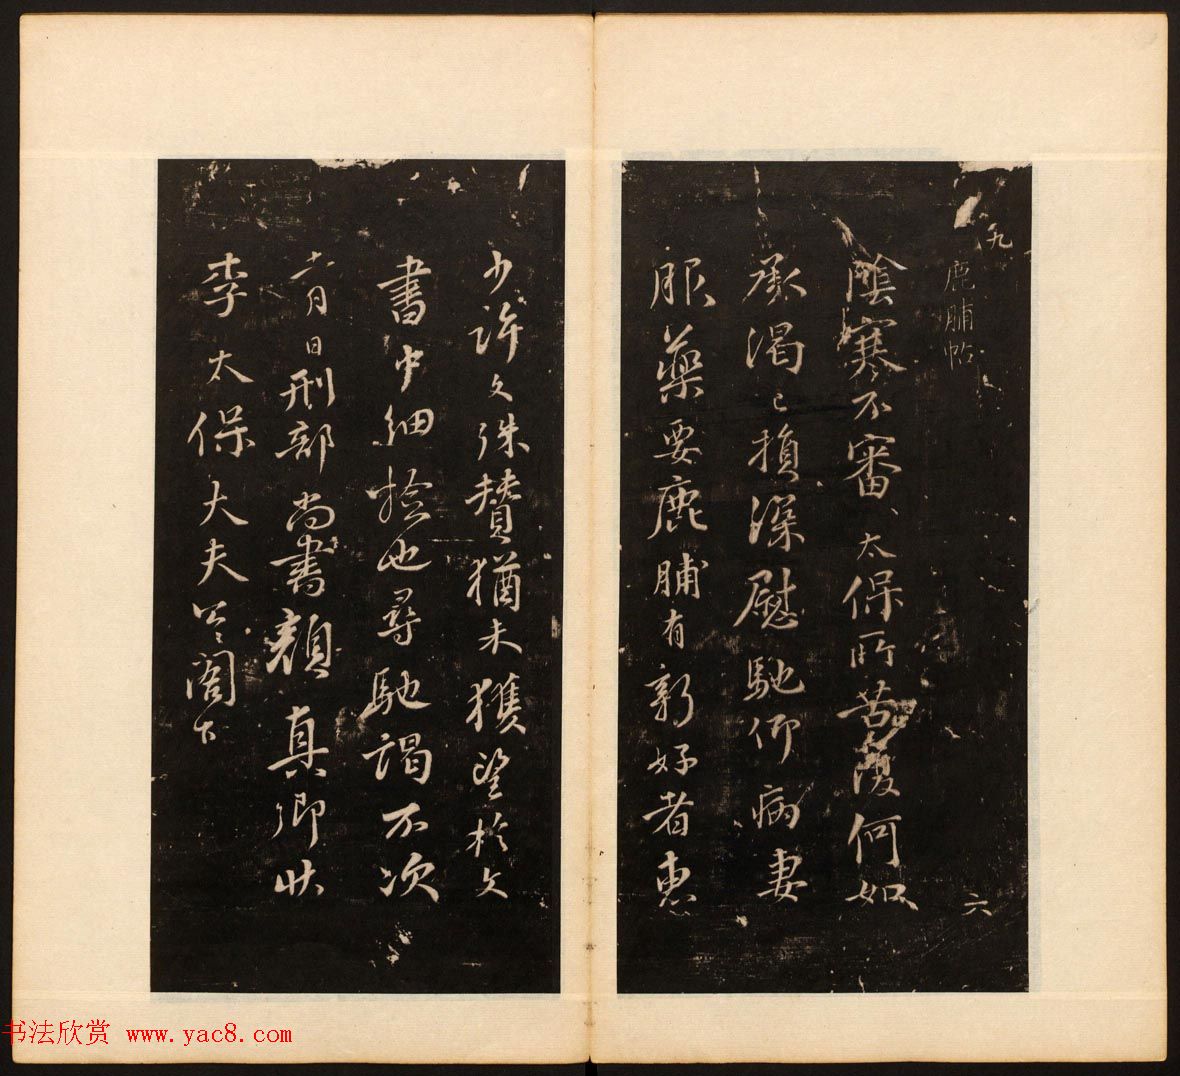 九
鹿脯帖
陰寒不審太保所苦復何如
承渴已損深慰馳仰病妻
服藥要鹿脯有新好者惠
六
少許文殊贊猶未獲望於文
書中細撿也尋馳謁不次
六月日刑部尚書顏真卿狀
李太保大夫公閣下
书法欣赏 www.yac8.com